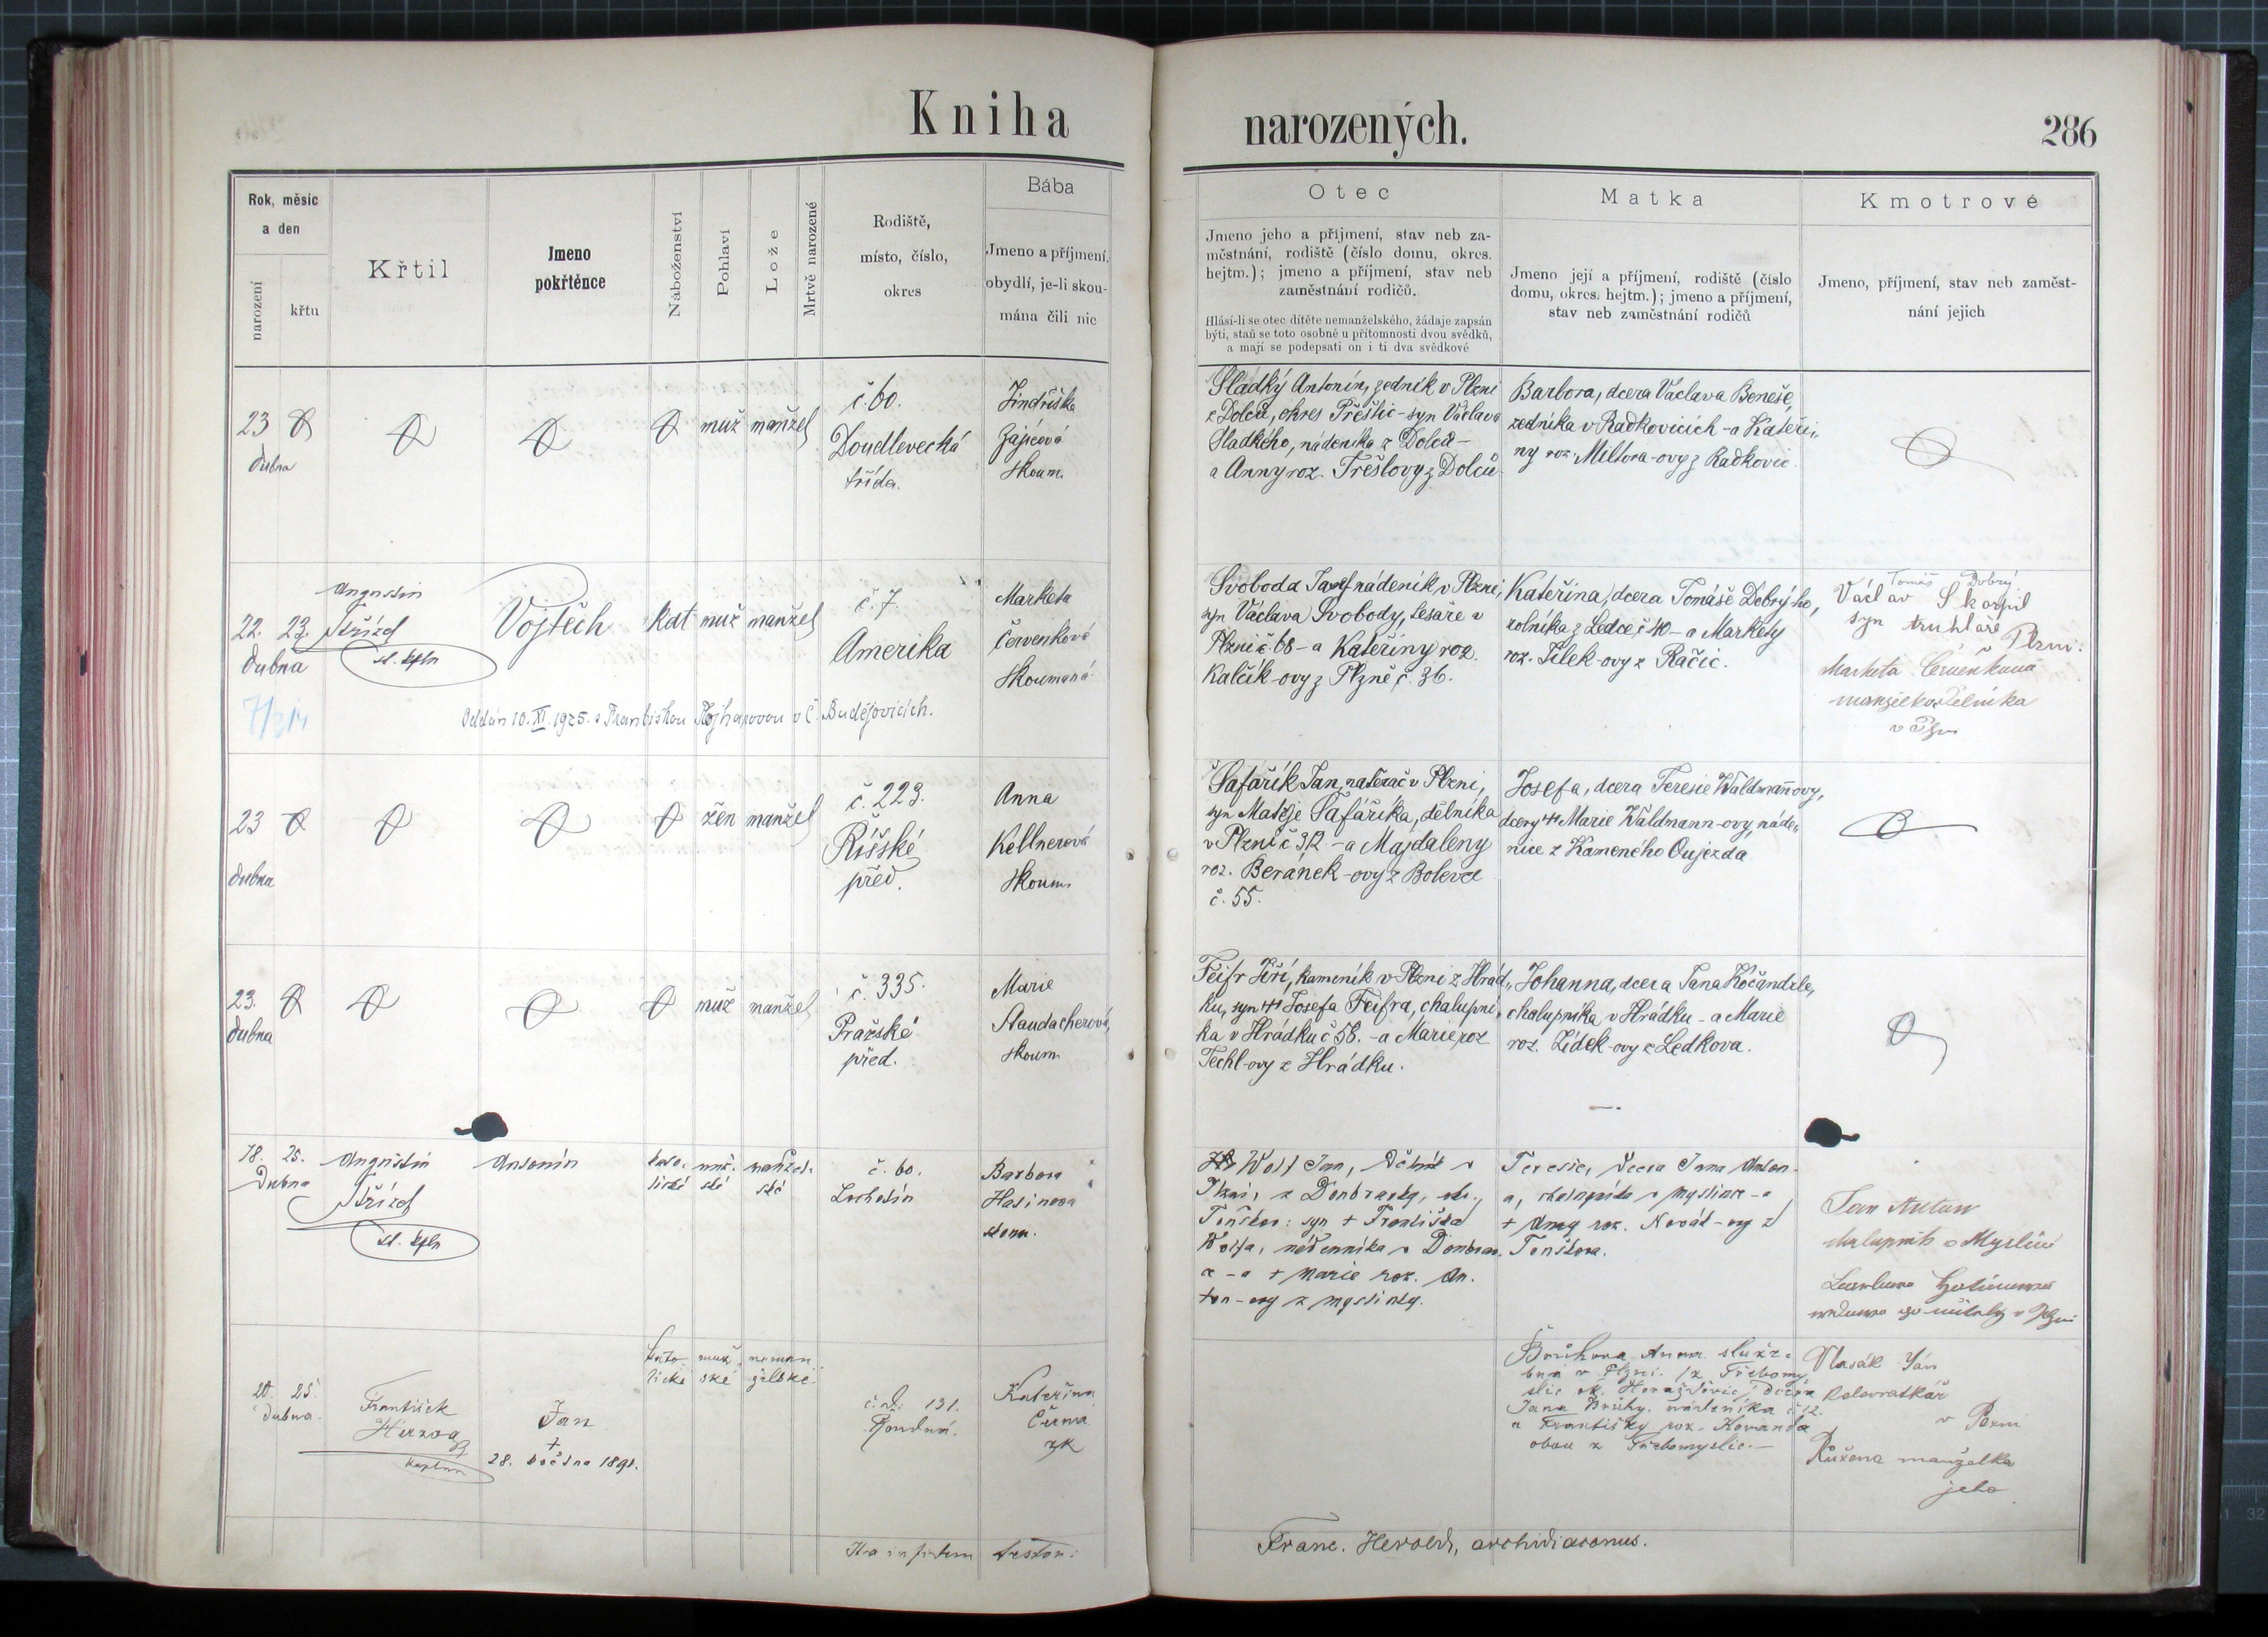 Kniha narozených.
286
Rok, měsíc
a den
narození
křtu
Křtil
Jmeno
pokřtěnce
Náboženství
Pohlaví
Lože
Mrtvě narozené
Rodiště,
místo, číslo,
okres
Bába
Jmeno a příjmení,
obydlí, je-li skou-
mána čili nic
Otec
Jmeno jeho a příjmení, stav neb za-
městnání, rodiště (číslo domu, okres.
hejtm.); jmeno a příjmení, stav neb
zaměstnání rodičů.
Hlásí-li se otec dítěte nemanželského, žádaje zapsán
býti, staň se toto osobně u přítomnosti dvou svědků,
a mají se podepsati on i ti dva svědkové
Matka
Jmeno její a příjmení, rodiště (číslo
domu, okres. hejtm.); jmeno a příjmení,
stav neb zaměstnání rodičů
Kmotrové
Jmeno, příjmení, stav neb zaměst-
nání jejich
23
dubna
muž manžel
č. 60.
Doudlevecká
třída.
Jindřiška
Zajícová
skoum.
Sladký Antonín, zedník v Plzni
z Dolců, okres Přeštic - syn Václava
Sladkého, nádeníka z Dolců -
a Anny roz. Treštovy z Dolců
Barbora, dcera Václava Beneše,
zedníka v Radkovicích - a Kateři„
ny roz. -ovy z Radkovic.
22. 23.
dubna
Augustin
Střízd
st. kpln
Vojtěch
kat muž manžel
č. 7.
Amerika
Marketa
Červenková
skoumaná
Svoboda Josef nádeník v Plzni,
syn Václava Svobody, tesaře v
Plzni č. 68 - a Kateřiny roz.
Kalčík-ovy z Plzně č. 36.
Kateřina, dcera Tomáše Dobrýho,
rolníka z Ledce č 40 - a Markety
roz. Tilek-ovy z Račic.
Tomáš Dobrý
Václav Skorpil
syn truhláře
Plzni.
Marketa Červenková
7/3 14
Oddán 10. XI. 1925. s Františkou v Č. Budějovicích.
23
dubna
žen manžel
č. 223.
Říšské
před.
Anna
Kellnerová
skoum.
Šafařík Jan, natěrač v Plzni,
syn Matěje Šafaříka, dělníka
v Plzni č 312 - a Majdaleny
roz. Beránek-ovy z Bolevce
č. 55.
Josefa, dcera Teresie Waldmannovy,
dcery Marie Waldmann-ovy, náde„
nice z Kameného Oujezda
23.
dubna
muž manžel
č. 335.
Pražské
před.
Marie
Staudacherová,
skoum.
Feifr Jiří, kameník v Plzni z Hrád„
ku, syn Josefa Feifra, chalupní„
ka v Hrádku č 58. - a Marie, roz
Techl-ovy z Hrádku.
Johanna, dcera Jana Kočandrle,
chalupníka v Hrádku - a Marie
roz. Žídek-ovy z Ledkova.
18. 25.
Dubna
Augustin
Střízd
st. kpln
Antonín
kato- muž- manžel-
lické ské ské
č. 60.
Lochotín
Barbora
Hasinova
skoum.
Wolf Jan, dělník v
Plzni, z Doubravky, ok.
Touškov: syn + Františka
Wolfa, nádenníka v Doubrav-
ce - a + Marie roz. An-
ton-ovy z Myslinky.
Teresie, dcera Jana Anton-
a, chalupníka v Myslince - a
+ Anny roz. Novák-ovy z
Touškova.
Jan Anton
chalupník v
20. 25.
dubna.
František
Herzog
kaplan
Jan
+
28. 1891.
kato- muž- neman-
lické ské želské.
č. d. 131.
Roudná.
Kateřina
Černa
zk
Brůhova Anna služe-
bná v Plzni. /z Třebomy-
slic ok. Horažďovic/ dcera
Jana Brůhy, nádeníka č 12.
a Františky roz. Kovanda
obou z Třebomyslic. -
Vlasák Jan
Kolovratkář
v Plzni
Růžena manželka
jeho
Ita in fidem testor:
Franc. Herold, archidiaconus.